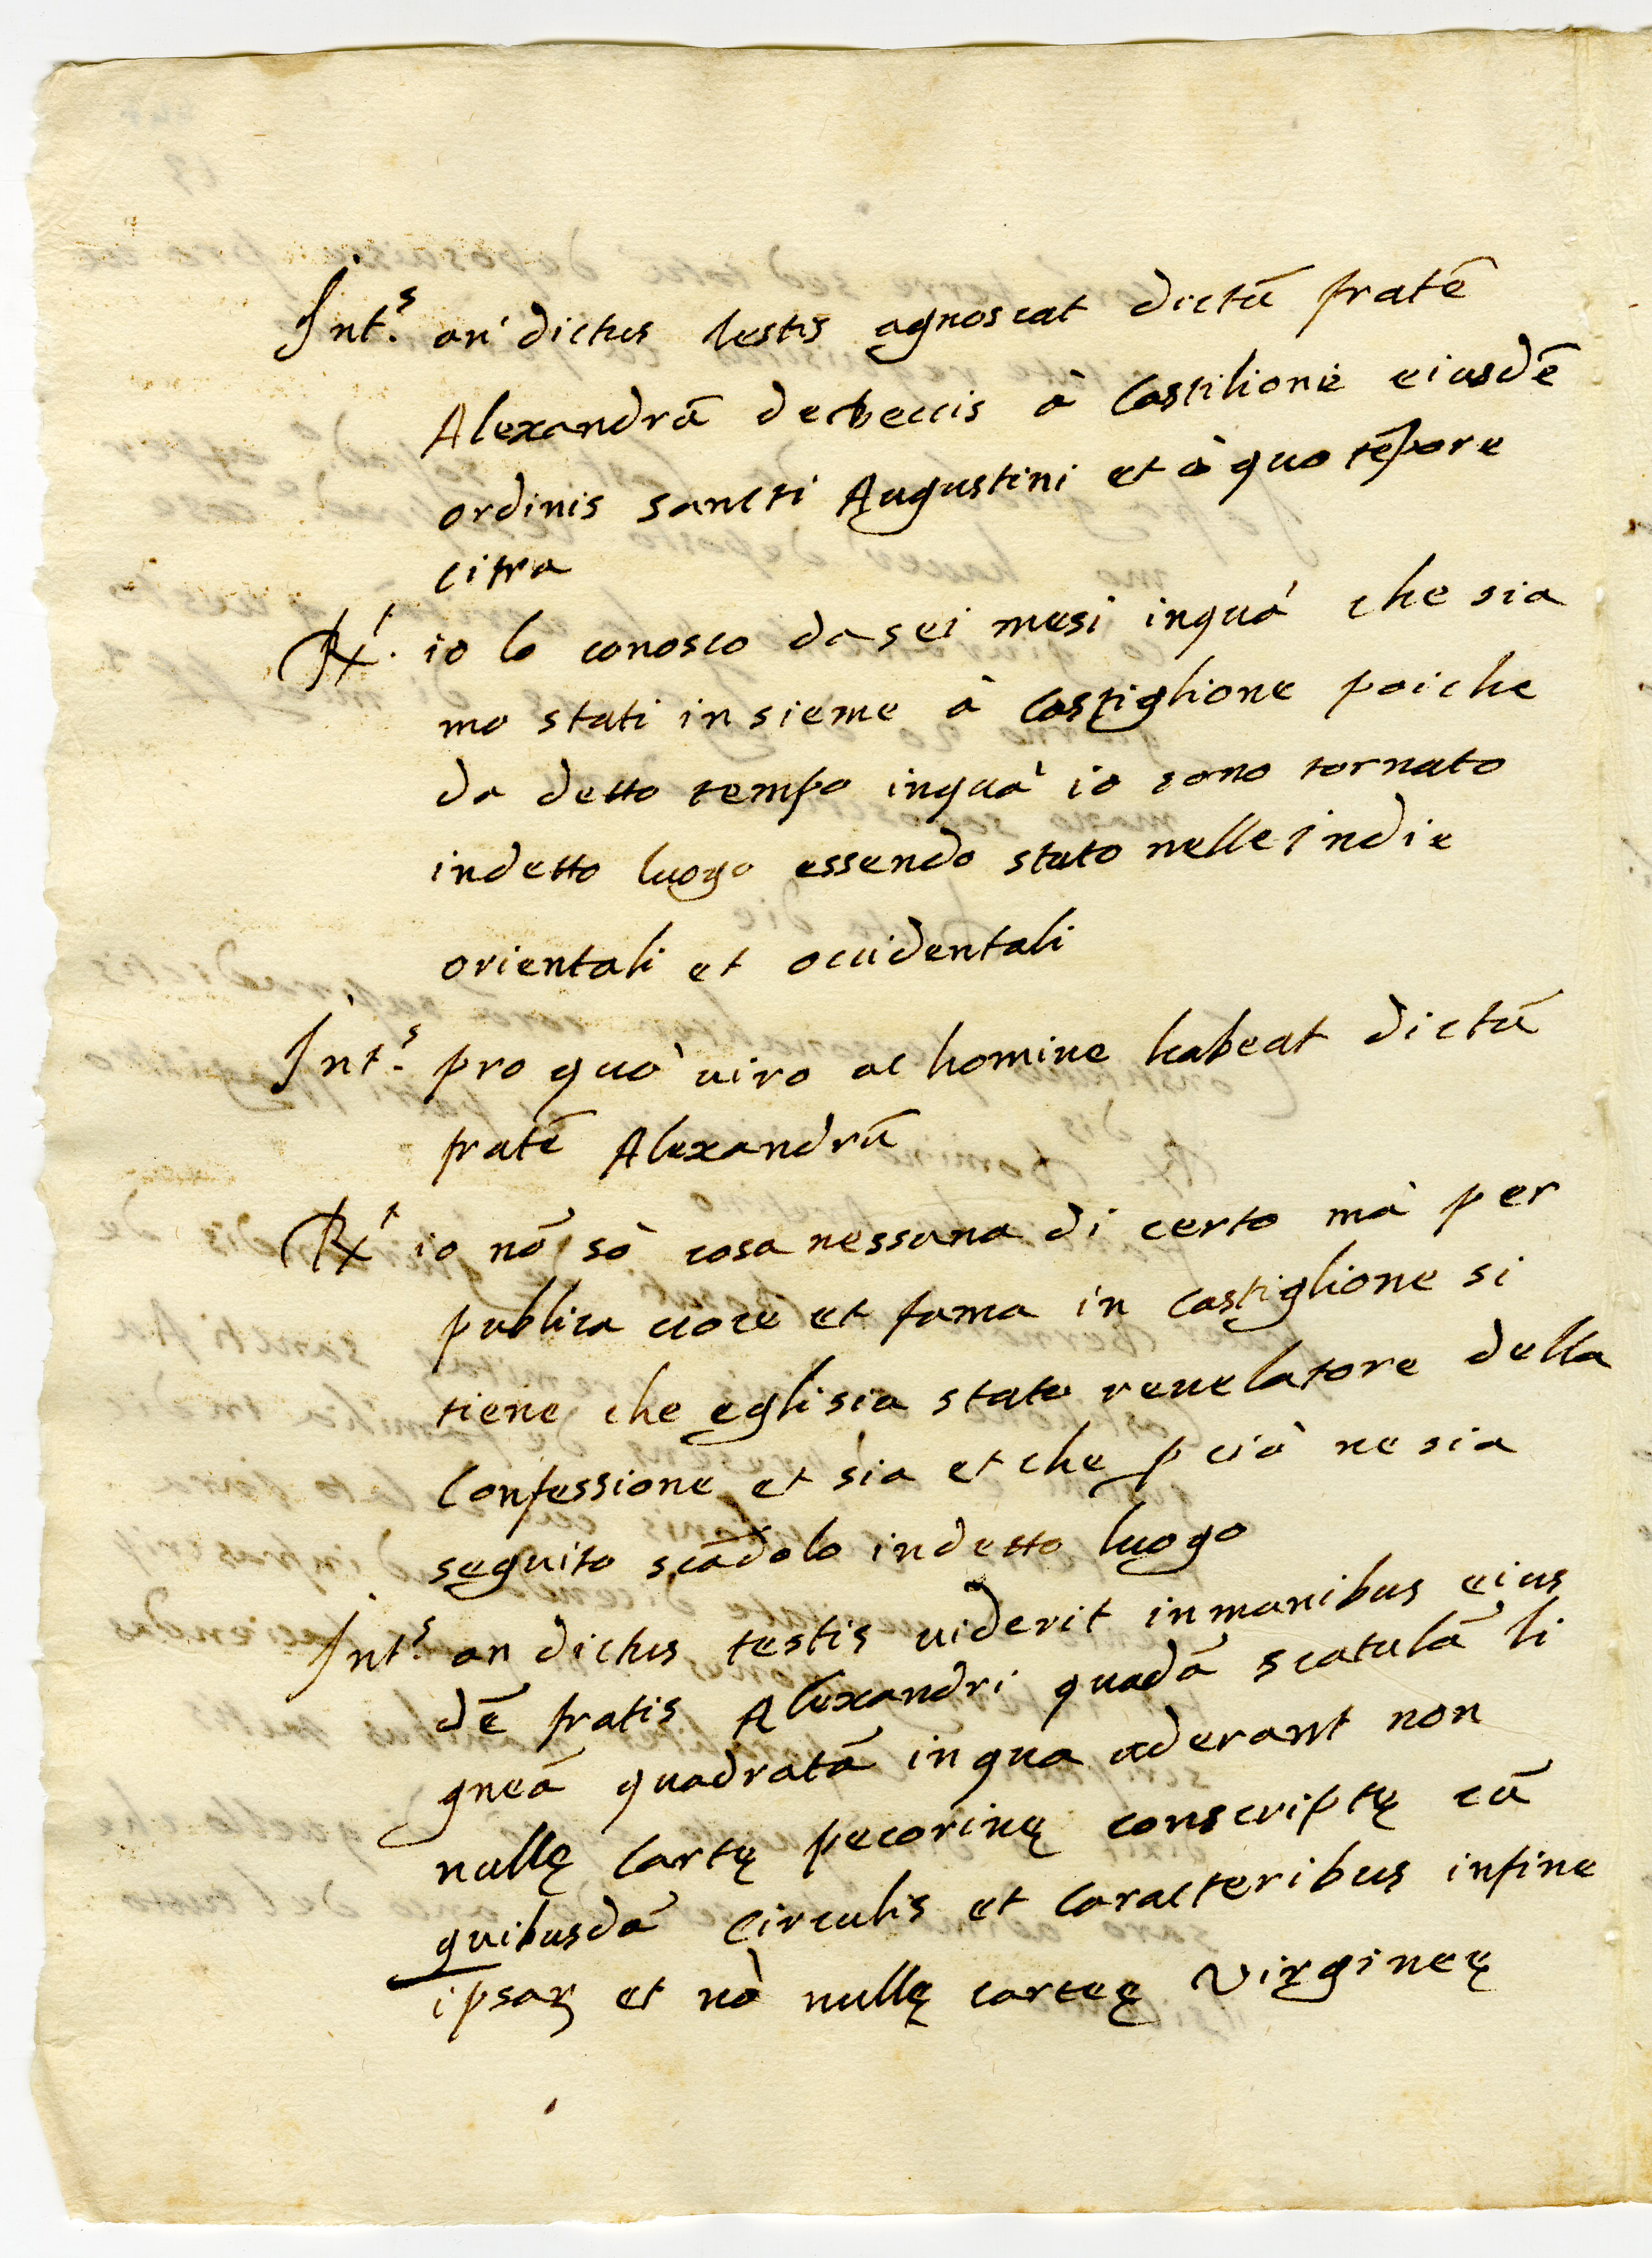 Int.s an dictus testis agnoscat dictũ fratẽ
Alexandrũ de beccis à Castilione eiusdẽ
ordinis sancti Augustini et à quo tẽpore
citra
Rx.t io lo conosco da sei mesi inquà che sia
mo stati insieme à Castiglione poi che
da detto tempo inquà io sono tornato
indetto luogo essendo stato nelle indie
orientali et occidentali
Int.s pro quo viro ac homine habeat dictũ
fratẽ Alexandrũ
Rx.t io nõ sò cosa nessuna di certo mà per
publica uoce et fama in Castiglione si
tiene che egli sia stato reuelatore della
Confessione et sia et che p ciò ne sia
seguito scãdolo indetto luogo
Int.s an dictus testis uiderit in manibus eius
dẽ fratis Alexandri quadã scatulã li
gneã quadratã in qua aderant non
nullę Cartę pecorinę conscriptę cũ
quibusdã circulis et Caracteribus infine
ipsaꝝ et nõ nullę carteę Virgineę